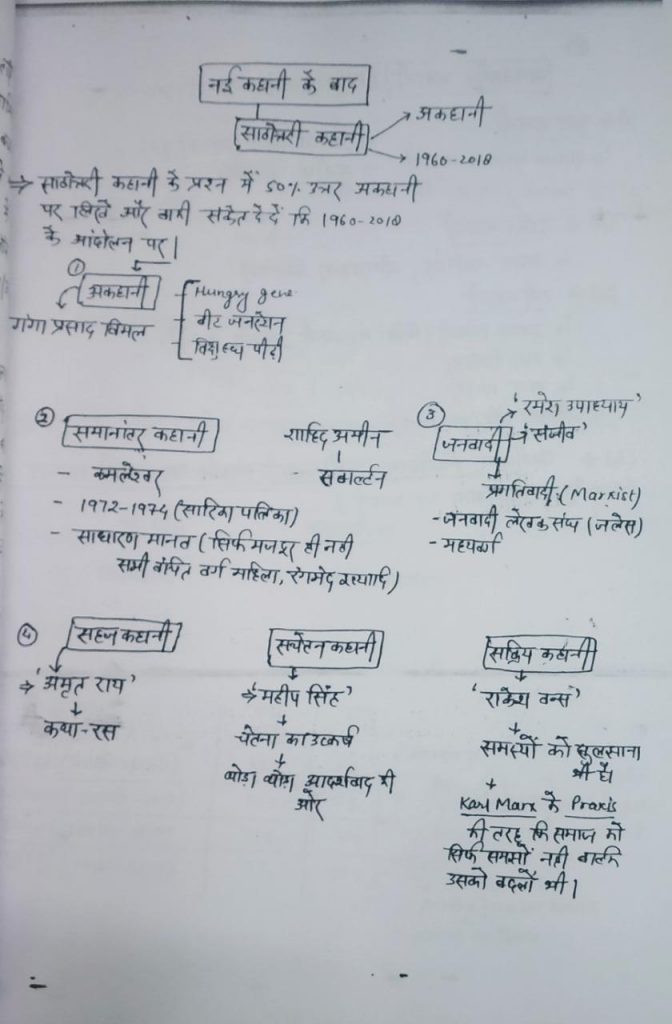 नई कहानी के बाद
साठोत्तरी कहानी
अकहानी
1960-2018
⇒ साठोत्तरी कहानी के प्रश्न में 50% उत्तर अकहानी
पर लिखें और बाकी संकेत दे दें कि 1960-2018
के आंदोलन पर।
① अकहानी
गंगा प्रसाद विमल
- Hungry gene
- बीट जनरेशन
- विक्षुब्ध पीढ़ी
② समानांतर कहानी
- कमलेश्वर
- 1972-1974 (सारिका पत्रिका)
- साधारण मानव (सिर्फ मजदूर ही नहीं
सभी वंचित वर्ग महिला, रंगभेद इत्यादि)
शाहिद अमीन
सबाल्टर्न
③ जनवादी
'रमेश उपाध्याय'
'संजीव'
प्रगतिवादी (Marxist)
- जनवादी लेखक संघ (जलेस)
- मध्यवर्ग
④ सहज कहानी
⇒ 'अमृत राय'
कथा-रस
सचेतन कहानी
⇒ 'महीप सिंह'
चेतना का उत्कर्ष
थोड़ा थोड़ा आदर्शवाद की
ओर
सक्रिय कहानी
'राकेश वत्स'
समस्यों को सुलसाना
भी है।
Karl Marx के Praxis
की तरह कि समाज को
सिर्फ समझों नहीं बल्कि
उसको बदलों भी।